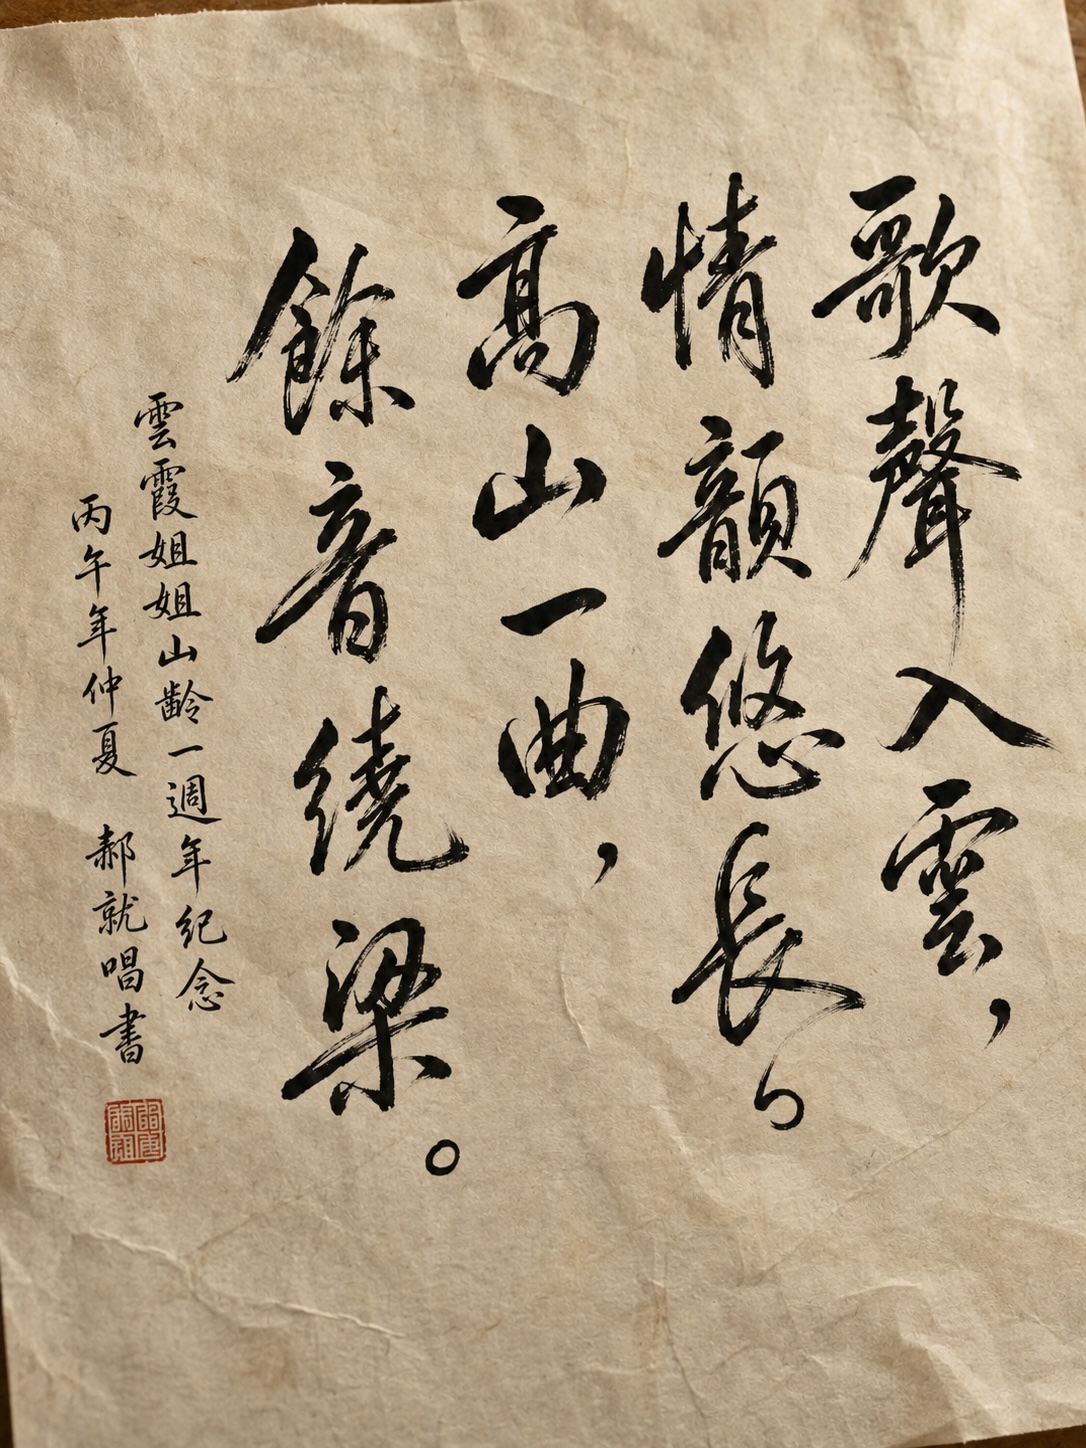 歌聲入雲，
情韻悠長。
高山一曲，
餘音繞梁。
雲霞姐姐山齡一週年紀念
丙午年仲夏 郝就唱書